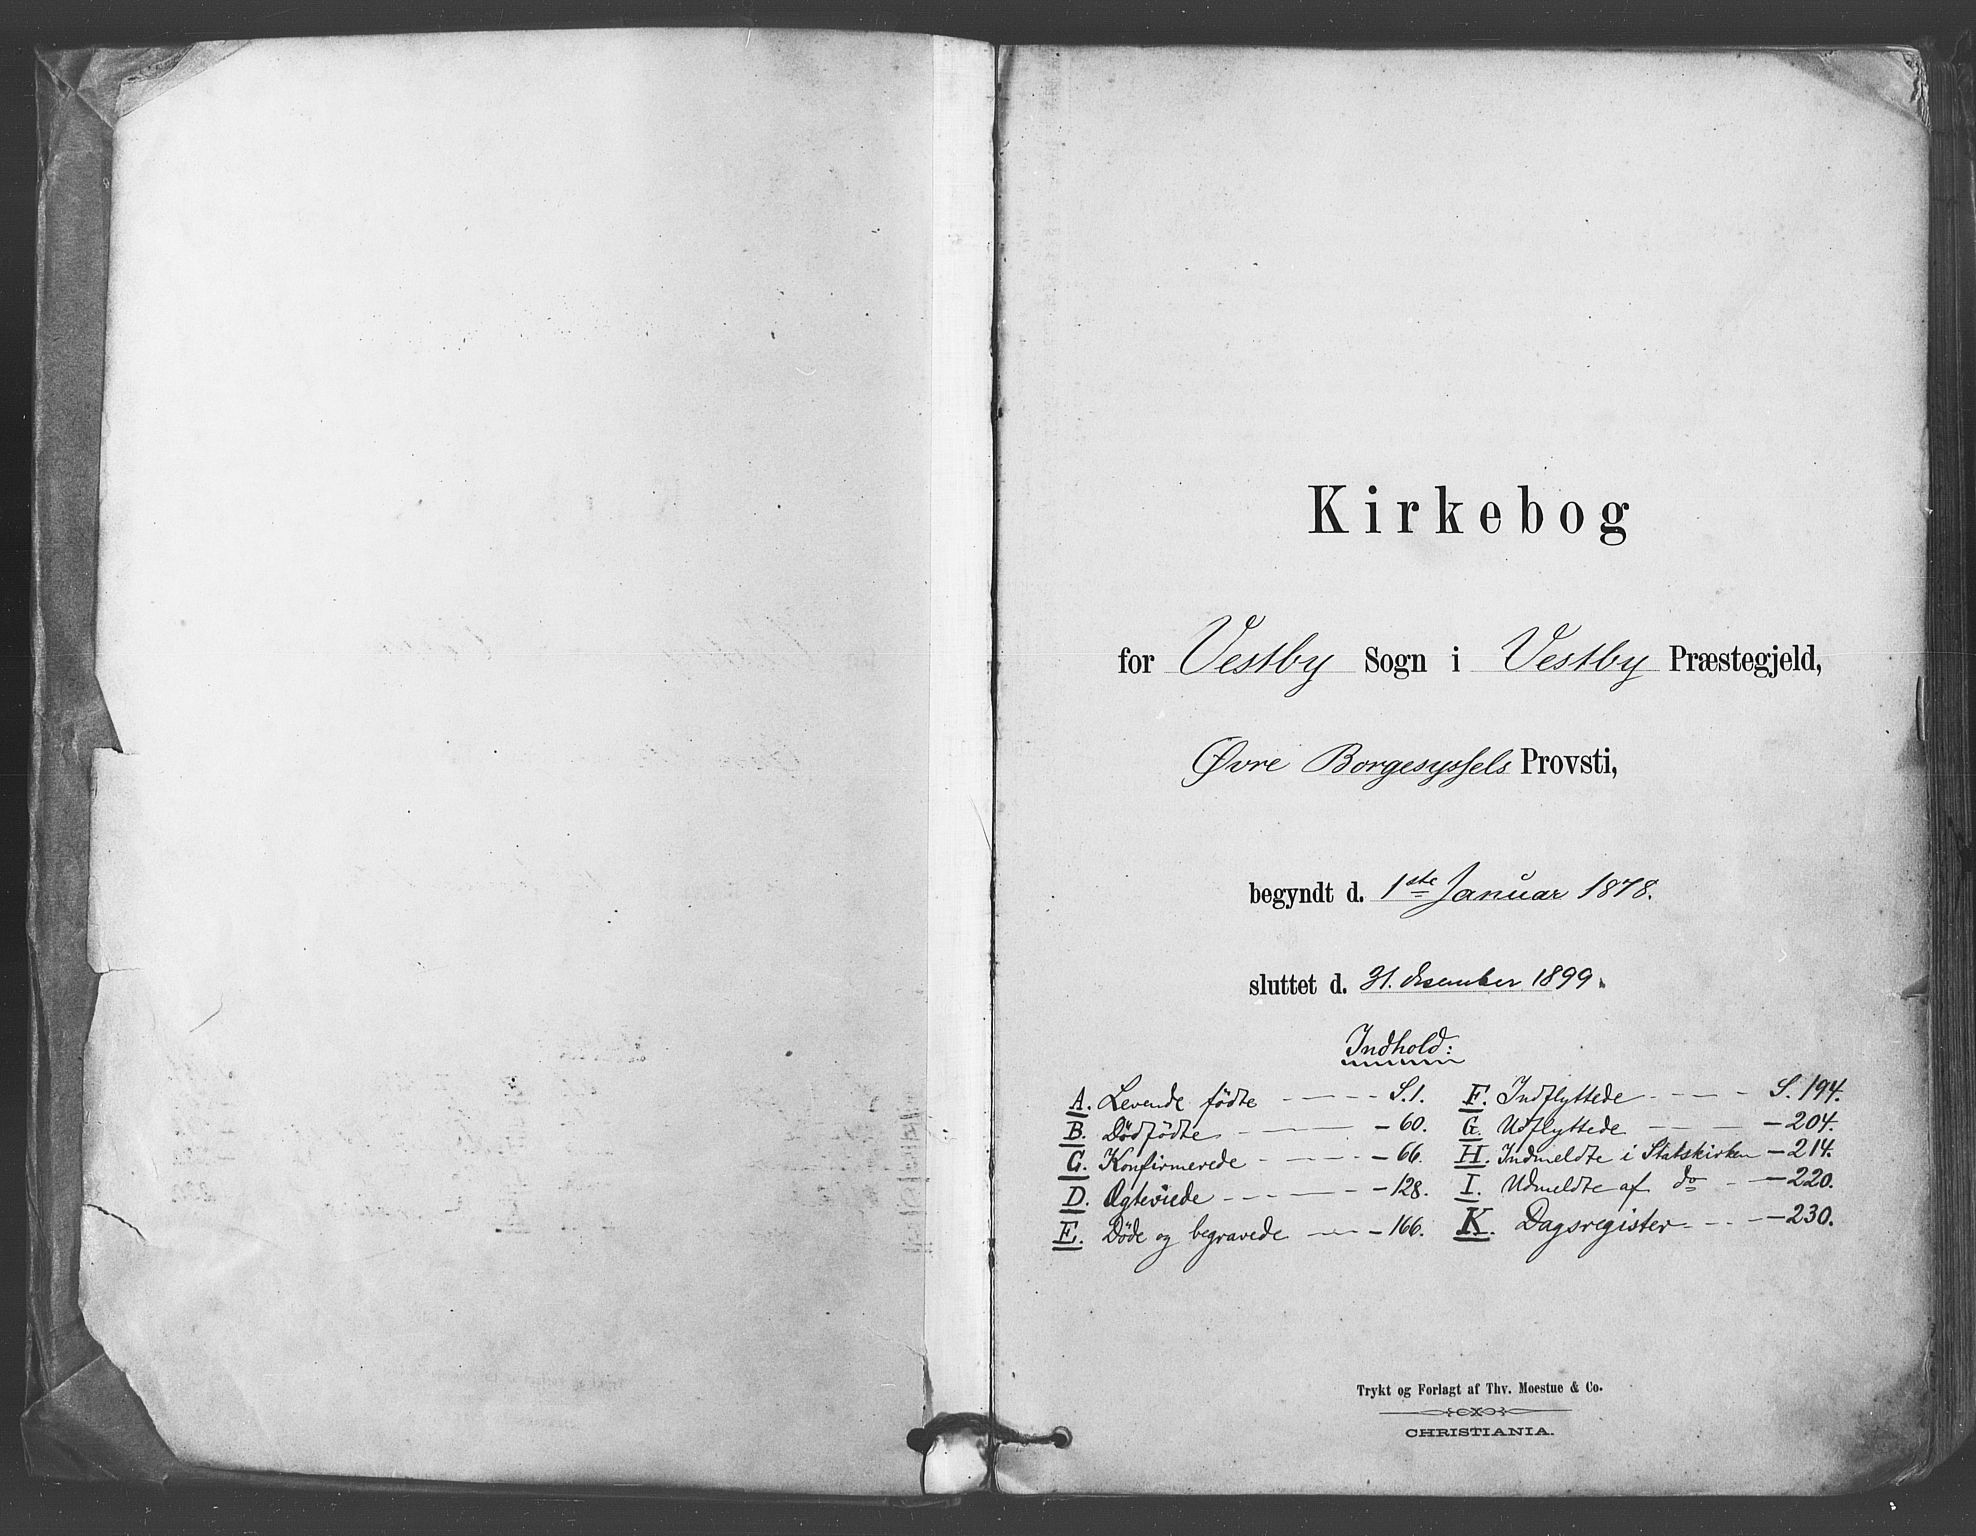 Kirkebog
for Vestby Sogn i Vestby Præstegjeld,
Øvre Borgesyssels Provsti,
begyndt d. 1ste Januar 1878.
sluttet d. 31. desember 1899.
Indhold:
A. Levende födte - - - - S. 1.
B. Dödfödte - - - - 60.
C. Konfirmerede - - - - 66.
D. Ægteviede - - - - 128.
E. Döde og begravede - - - 166.
F. Indflyttede - - - - S. 194.
G. Udflyttede - - - 204.
H. Indmeldte i Statskirken - 214.
I. Udmeldte af do - - 220.
K. Dagsregister - - - 230.
Trykt og Forlagt af Thv. Moestue & Co.
CHRISTIANIA.